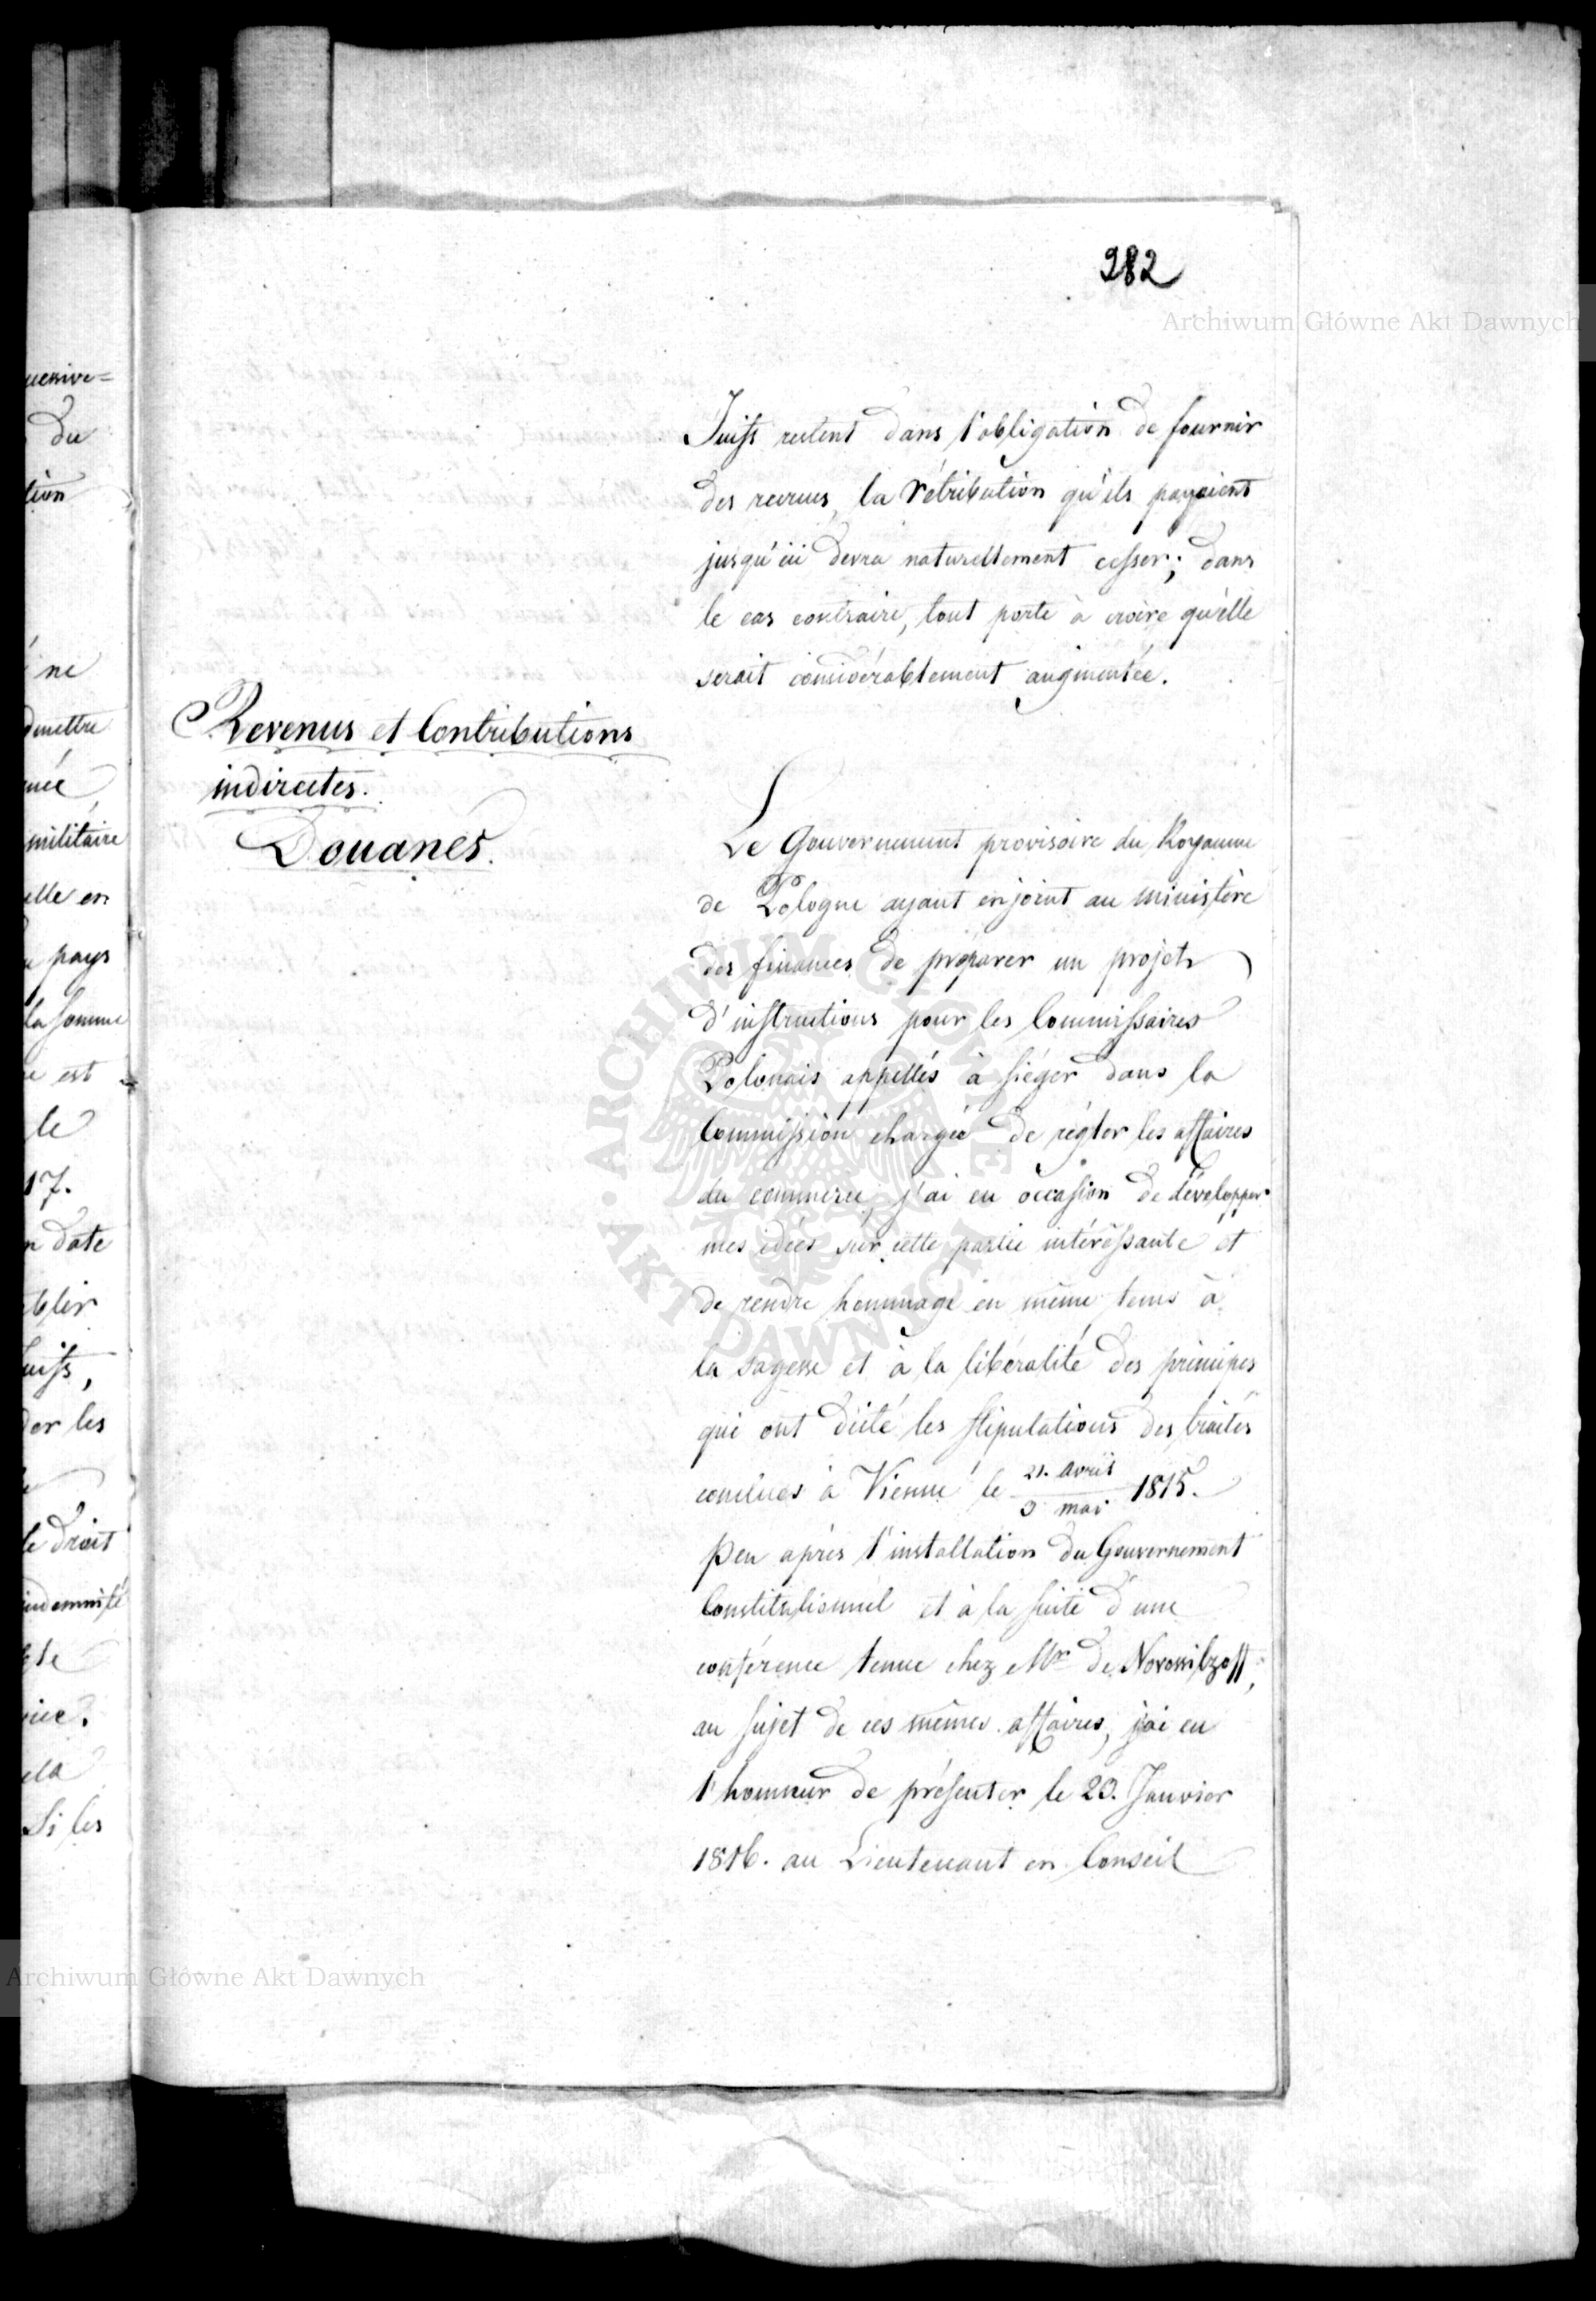 282
Archiwum Główne Akt Dawnych
Juifs restent dans l'obligation de fournir
des recrues, la rétribution qu'ils payaient
jusqu'ici devra naturellement cesser; dans
le cas contraire, tout porte à croire qu'elle
serait considérablement augmentée.
Revenus et Contributions
indirectes.
Douanes.
Le Gouvernement provisoire du Royaume
de Pologne ayant enjoint au ministère
des finances de préparer un projet
d'instructions pour les Commissaires
Polonais appellés à siéger dans la
Commission chargée de régler les affaires
du commerce, j'ai eu occasion de développer
mes idées sur cette partie intéressante et
de rendre hommage en même tems à
la sagesse et à la libéralité des principes
qui ont dicté les stipulations des traités
conclues à Vienne le 21. avril / 3 mai 1815.
Peu après l'installation du Gouvernement
Constitutionnel et à la suite d'une
conférence tenue chez Mr de Novossiltzoff,
au sujet de ces mêmes affaires, j'ai eu
l'honneur de présenter le 20. Janvier
1816. au Lieutenant en Conseil
ARCHIWUM GŁÓWNE · AKT DAWNYCH ·
Archiwum Główne Akt Dawnych
du
tion
ne
militaire
elle en
pays
la somme
est
le
17.
date
les
le droit
Si les